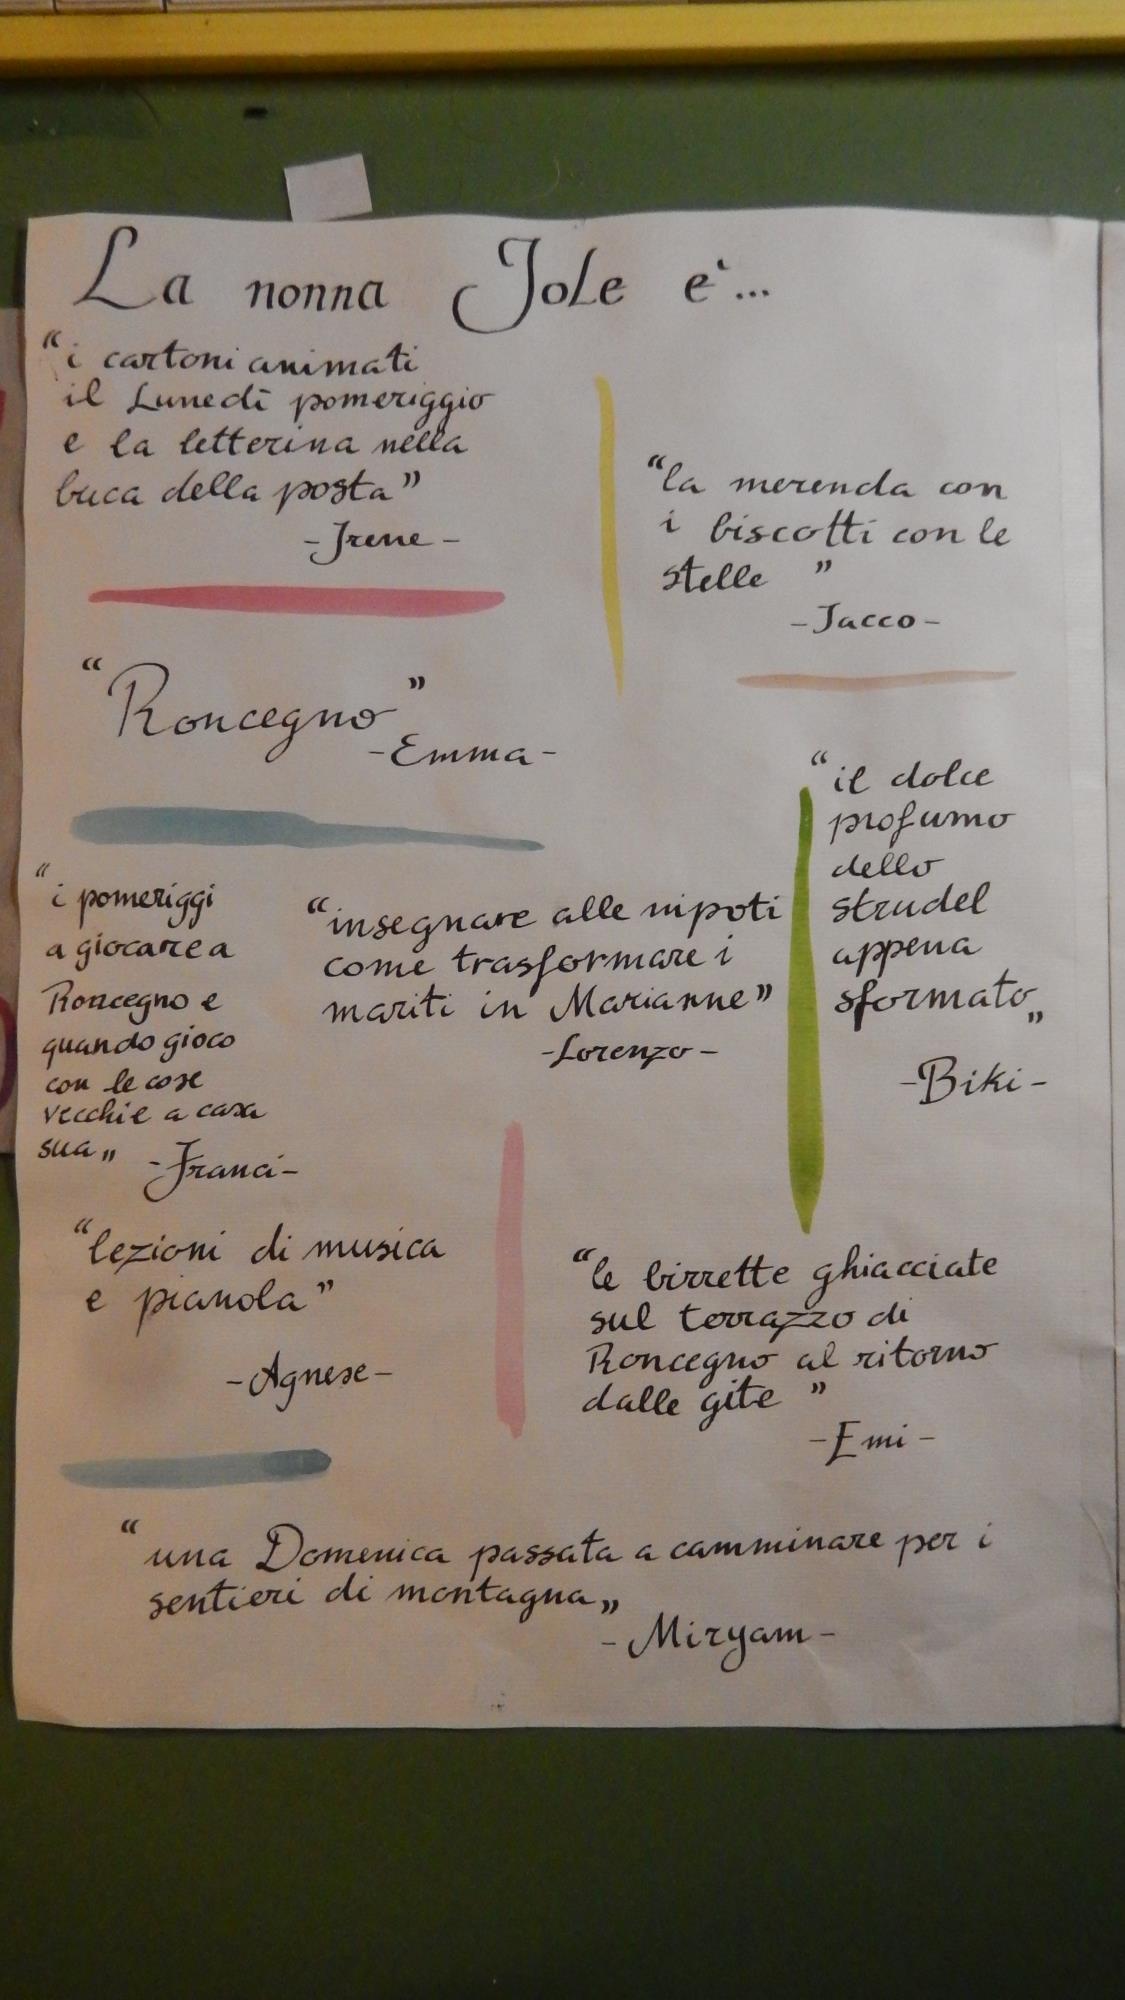 La nonna Jole è...
“i cartoni animati
il Lunedì pomeriggio
e la letterina nella
buca della posta”
-Irene-
“la merenda con
i biscotti con le
stelle ”
-Jacco-
“Roncegno”
-Emma-
“il dolce
profumo
dello
strudel
appena
sformato„
-Biki-
“i pomeriggi
a giocare a
Roncegno e
quando gioco
con le cose
vecchie a casa
sua„
-Franci-
“insegnare alle nipoti
come trasformare i
mariti in Marianne”
-Lorenzo-
“lezioni di musica
e pianola”
-Agnese-
“le birrette ghiacciate
sul terrazzo di
Roncegno al ritorno
dalle gite ”
-Emi-
“una Domenica passata a camminare per i
sentieri di montagna„
-Miryam-